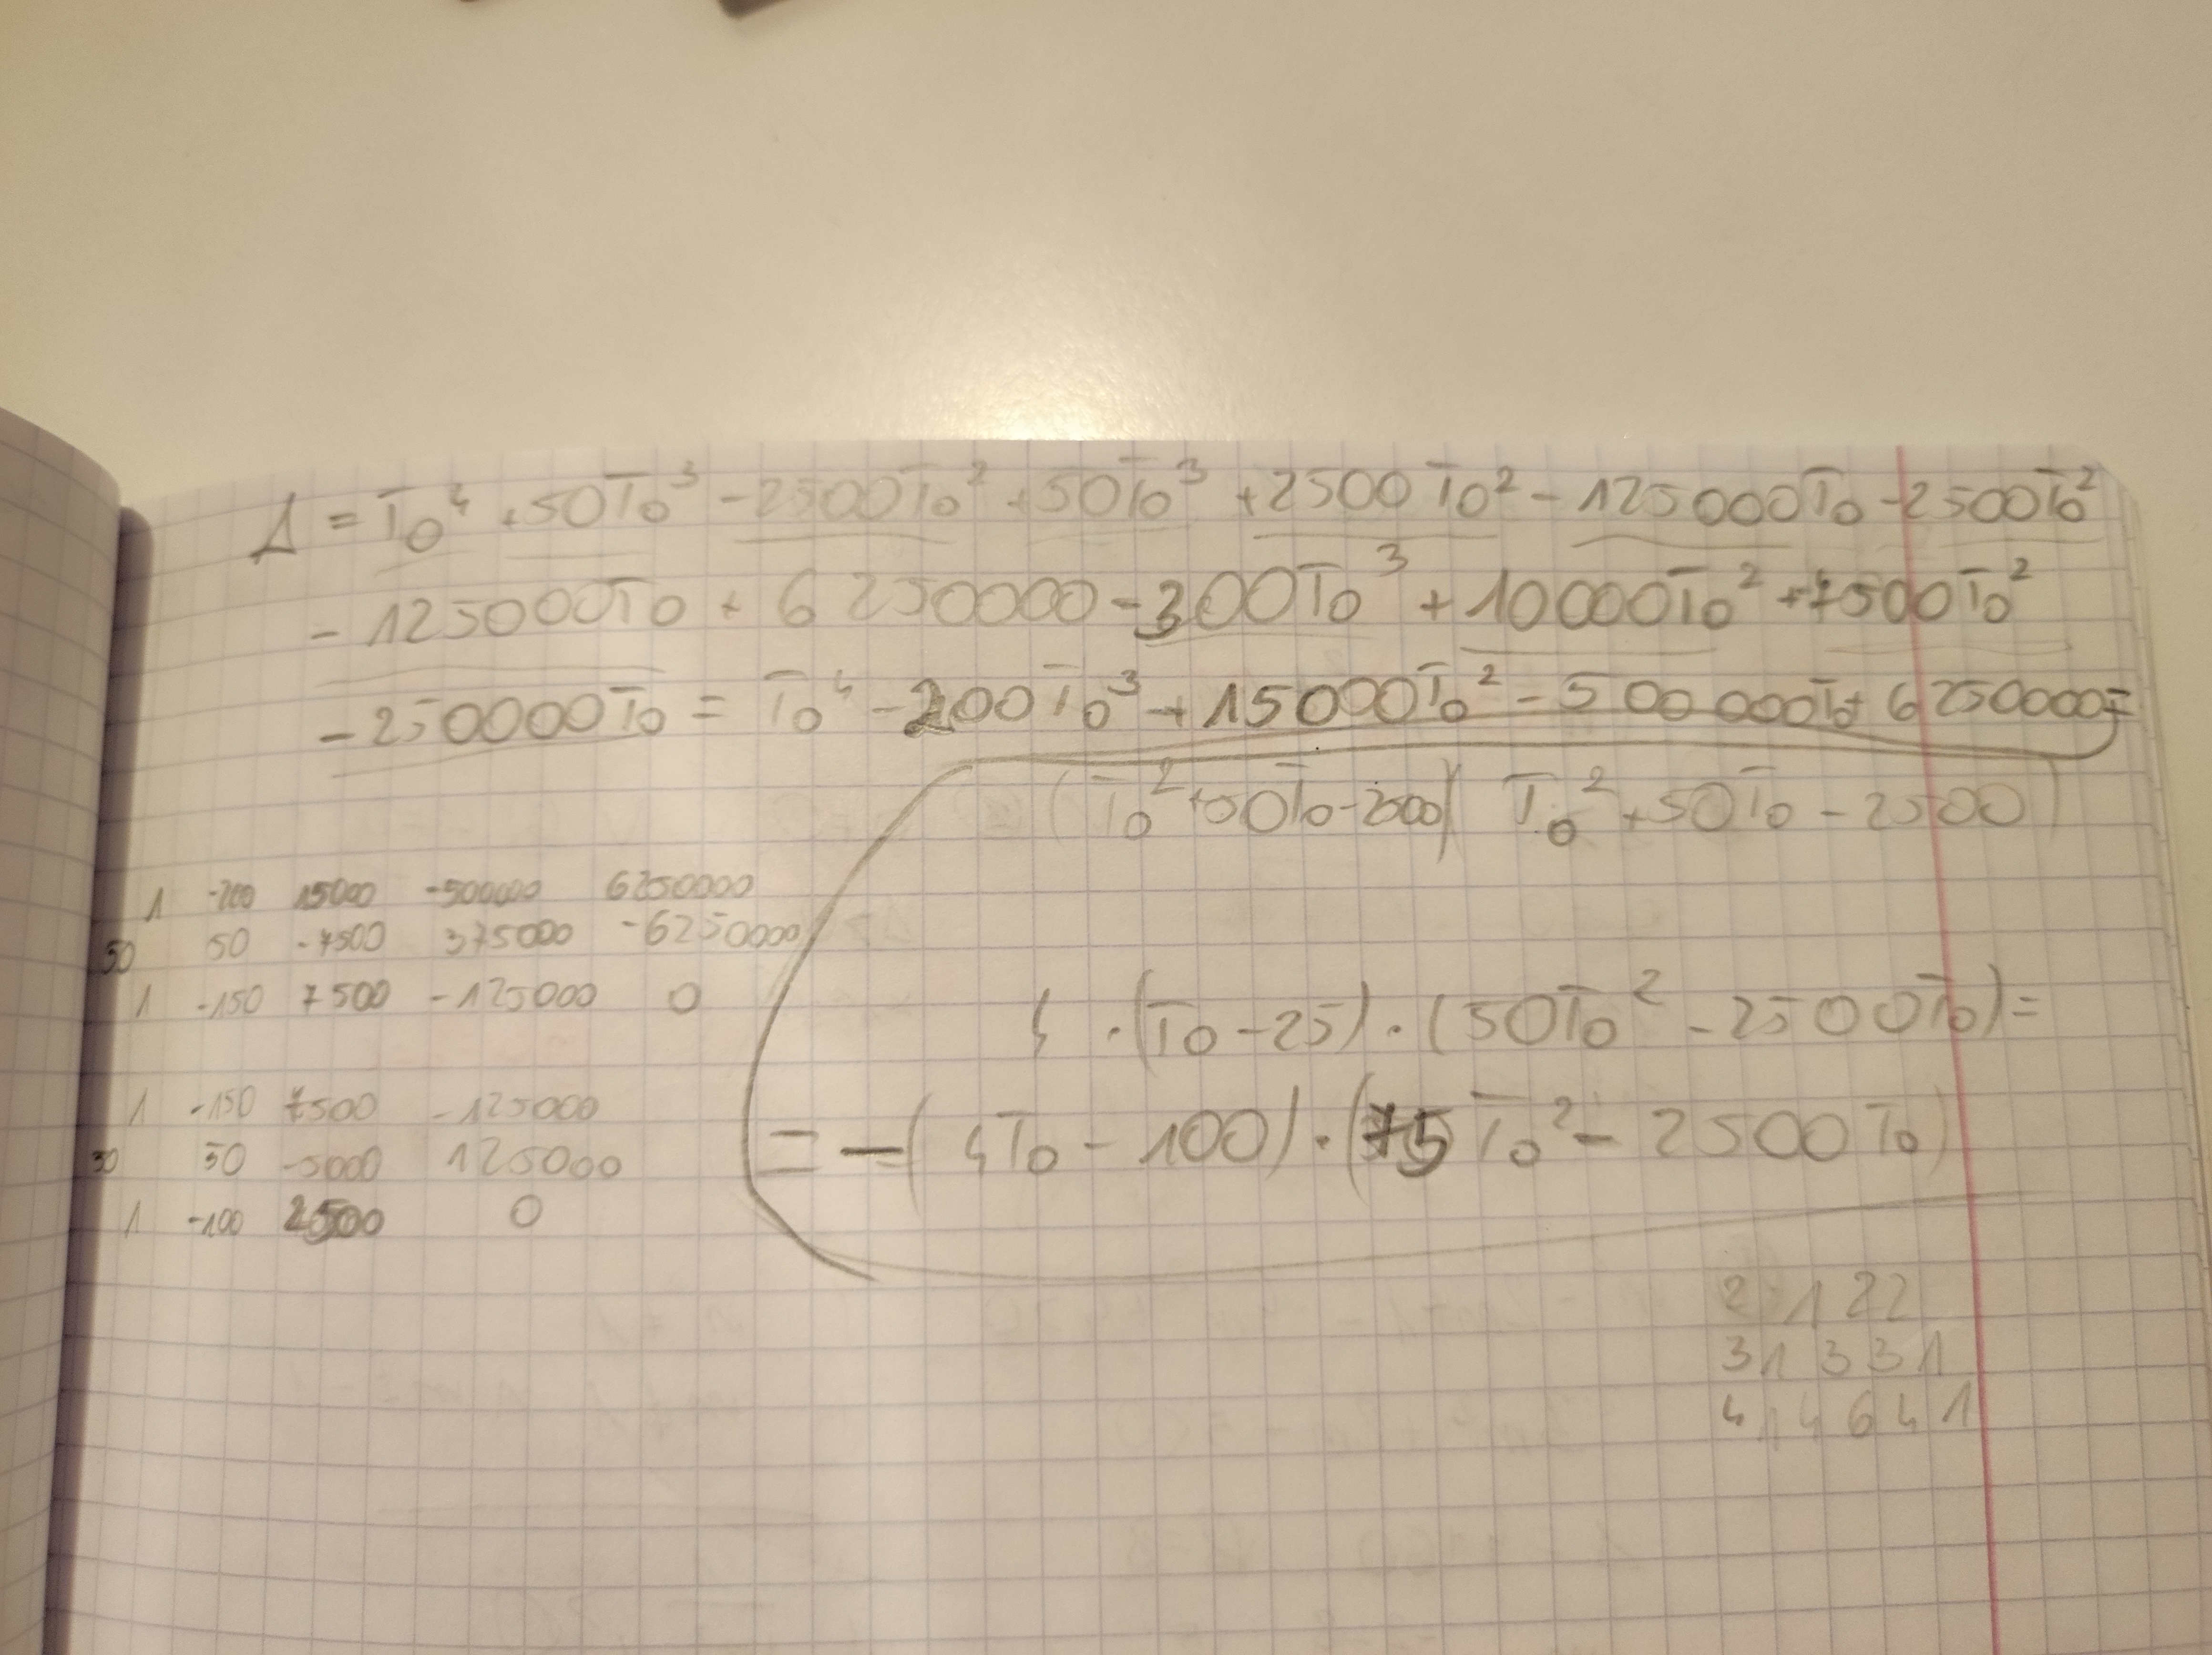 Δ = T₀⁴ + 50T₀³ - 2500T₀² + 50T₀³ + 2500T₀² - 125000T₀ - 2500T₀²
- 125000T₀ + 6250000 - 300T₀³ + 10000T₀² + 7500T₀²
- 250000T₀ = T₀⁴ - 200T₀³ + 15000T₀² - 500000T₀ + 6250000 =
(T₀² + 50T₀ - 2500)(T₀² + 50T₀ - 2500)
1 -200 15000 -500000 6250000
50 50 -7500 375000 -6250000
1 -150 7500 -125000 0
4 · (T₀ - 25) · (50T₀² - 2500T₀) =
= - (4T₀ - 100) · (75T₀² - 2500T₀)
1 -150 7500 -125000
50 50 -5000 125000
1 -100 2500 0
2 1 2 2
3 1 3 3 1
4 1 4 6 4 1